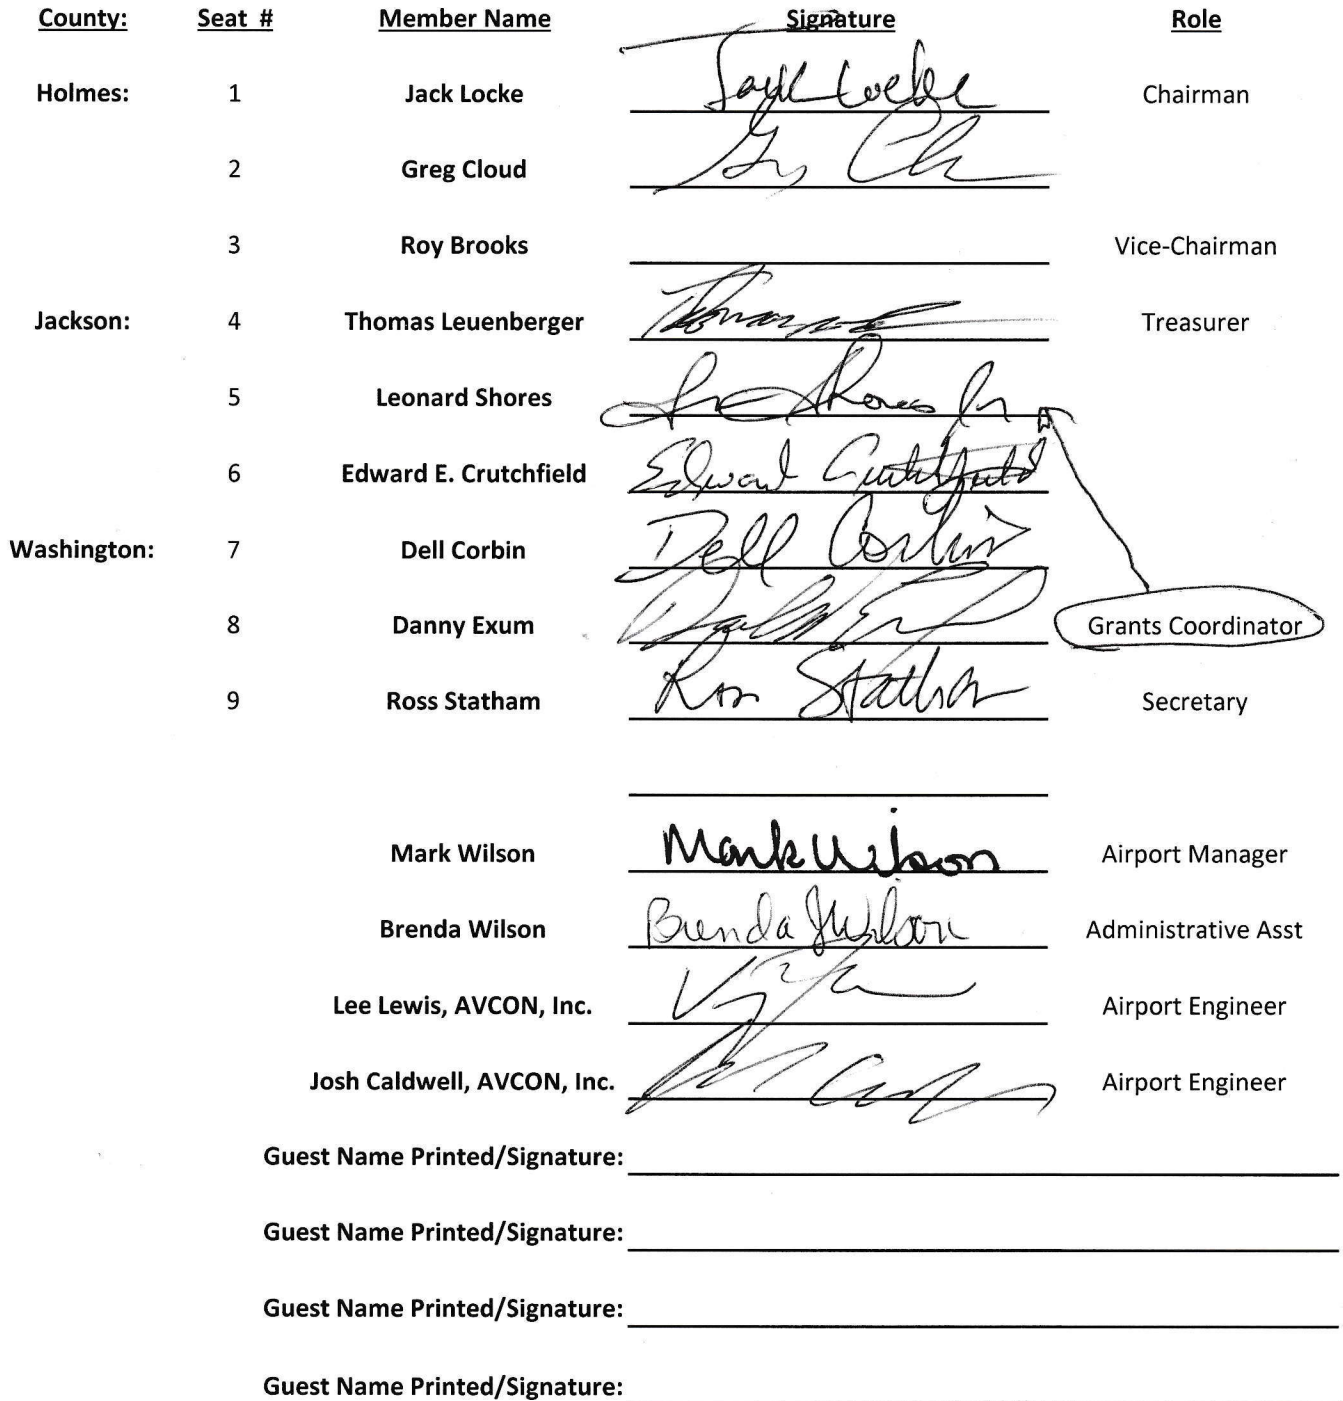 County: Seat # Member Name Signature Role
Holmes: 1 Jack Locke Jack Locke Chairman
2 Greg Cloud
3 Roy Brooks Vice-Chairman
Jackson: 4 Thomas Leuenberger Treasurer
5 Leonard Shores Shores Jr
6 Edward E. Crutchfield Edward Crutchfield
Washington: 7 Dell Corbin Dell Corbin
8 Danny Exum Grants Coordinator
9 Ross Statham Ross Statham Secretary
Mark Wilson Mark Wilson Airport Manager
Brenda Wilson Brenda J Wilson Administrative Asst
Lee Lewis, AVCON, Inc. Airport Engineer
Josh Caldwell, AVCON, Inc. Airport Engineer
Guest Name Printed/Signature:
Guest Name Printed/Signature:
Guest Name Printed/Signature:
Guest Name Printed/Signature: